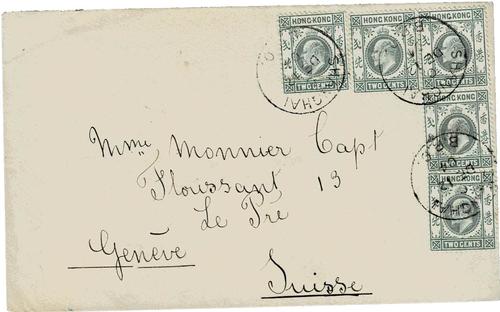 HONG KONG HONG KONG HONG KONG
TWO CENTS TWO CENTS TWO CENTS
SHANGHAI
HONG KONG
CENTS
B.P.O.
HONG KONG
TWO CENTS
Mme Monnier Capt
Floussant 13
Le Pré
Genève
Suisse